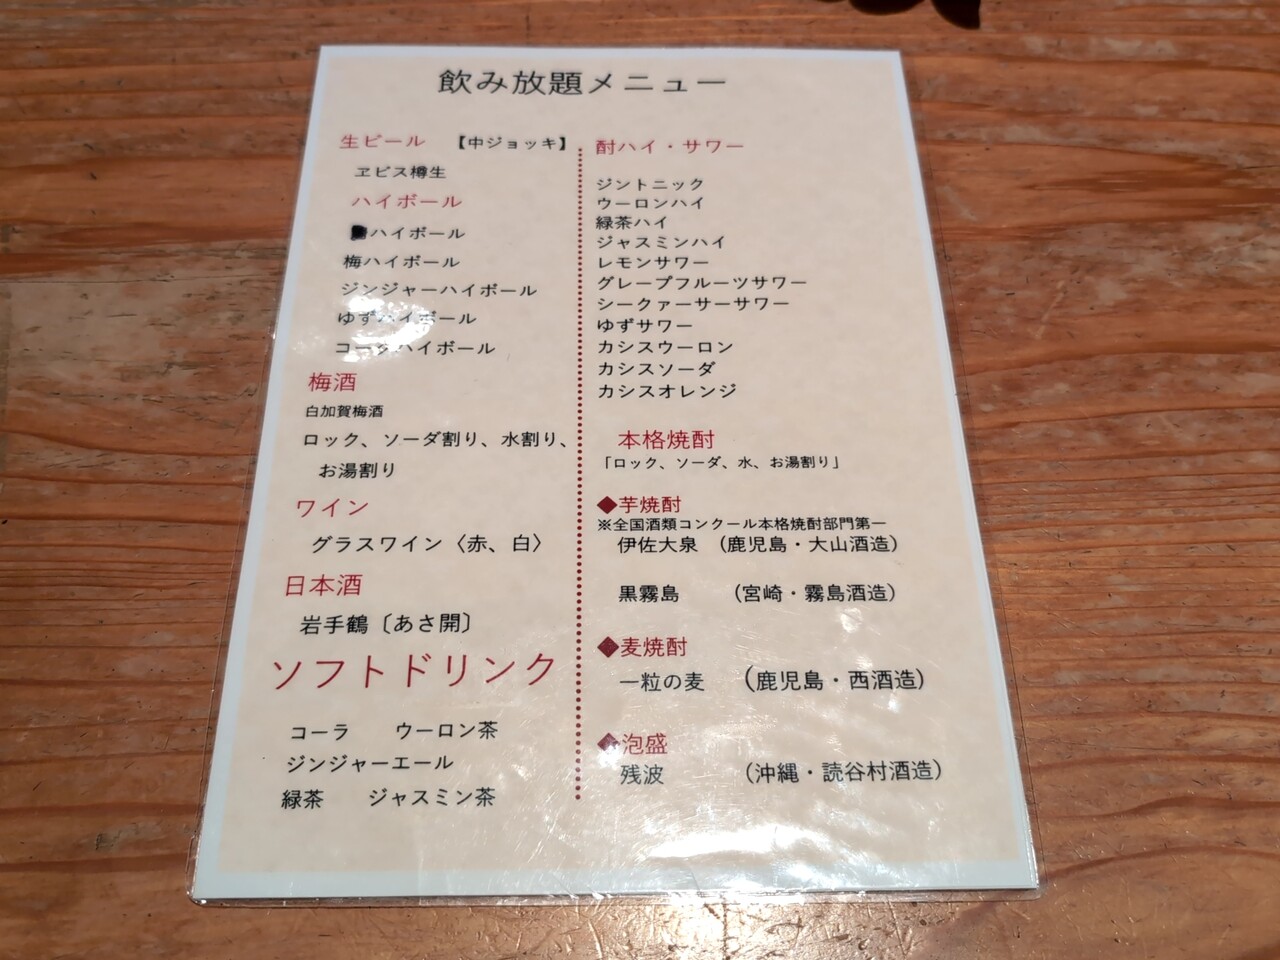 飲み放題メニュー
生ビール 【中ジョッキ】
ヱビス樽生
ハイボール
ハイボール
梅ハイボール
ジンジャーハイボール
ゆずハイボール
コークハイボール
梅酒
白加賀梅酒
ロック、ソーダ割り、水割り、
お湯割り
ワイン
グラスワイン〈赤、白〉
日本酒
岩手鶴〔あさ開〕
ソフトドリンク
コーラ ウーロン茶
ジンジャーエール
緑茶 ジャスミン茶
酎ハイ・サワー
ジントニック
ウーロンハイ
緑茶ハイ
ジャスミンハイ
レモンサワー
グレープフルーツサワー
シークァーサーサワー
ゆずサワー
カシスウーロン
カシスソーダ
カシスオレンジ
本格焼酎
「ロック、ソーダ、水、お湯割り」
◆芋焼酎
※全国酒類コンクール本格焼酎部門第一
伊佐大泉 （鹿児島・大山酒造）
黒霧島 （宮崎・霧島酒造）
◆麦焼酎
一粒の麦 （鹿児島・西酒造）
◆泡盛
残波 （沖縄・読谷村酒造）